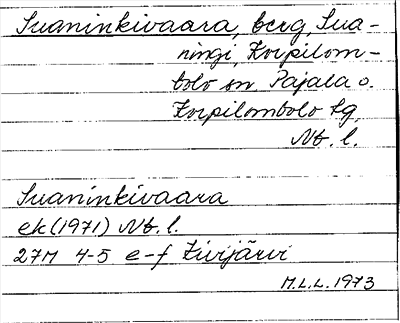 Suaninkivaara, berg, Sua-
ningi, Korpilom-
bolo sn, Pajala o.
Korpilombolo tg,
Nb. l.
Suaninkivaara
ek (1971) Nb. l.
27M 4-5 e-f Kivijärvi
M.L.L. 1973